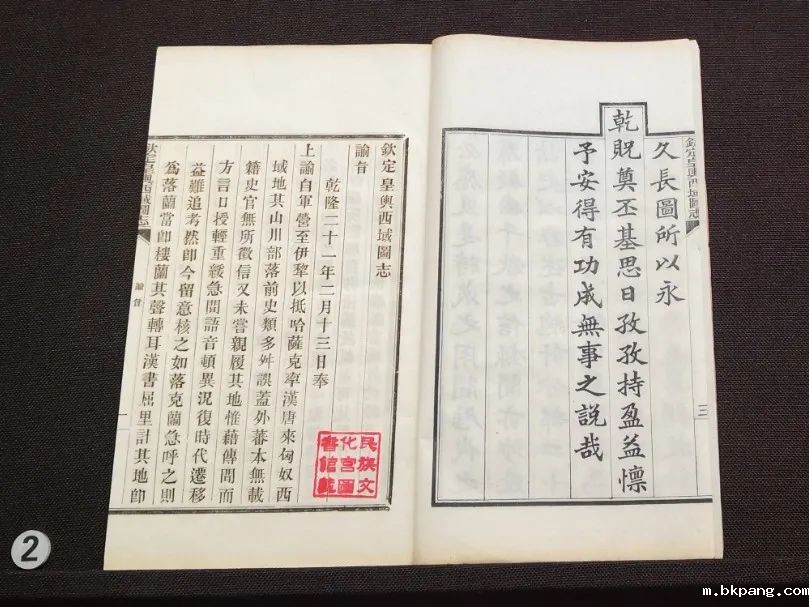 欽定皇輿西域圖志
三
久長圖所以永
乾貺奠丕基思日孜孜持盈益懍
予安得有功成無事之説哉
欽定皇輿西域圖志
諭旨
乾隆二十一年二月十三日奉
上諭自軍營至伊犂以抵哈薩克率漢唐來匈奴西
域地其山川部落前史類多舛誤蓋外蕃本無載
籍史官無所徵信又未嘗親履其地惟藉傳聞而
方言口授輕重緩急間語音頓異況復時代遷移
益難追考然卽今留意核之如落克蘭急呼之則
爲落蘭當卽樓蘭其聲轉耳漢書屈里計其地卽
欽定皇輿西域圖志
諭旨
一
民族文
化宮圖
書館藏
2
m.bkpang.com